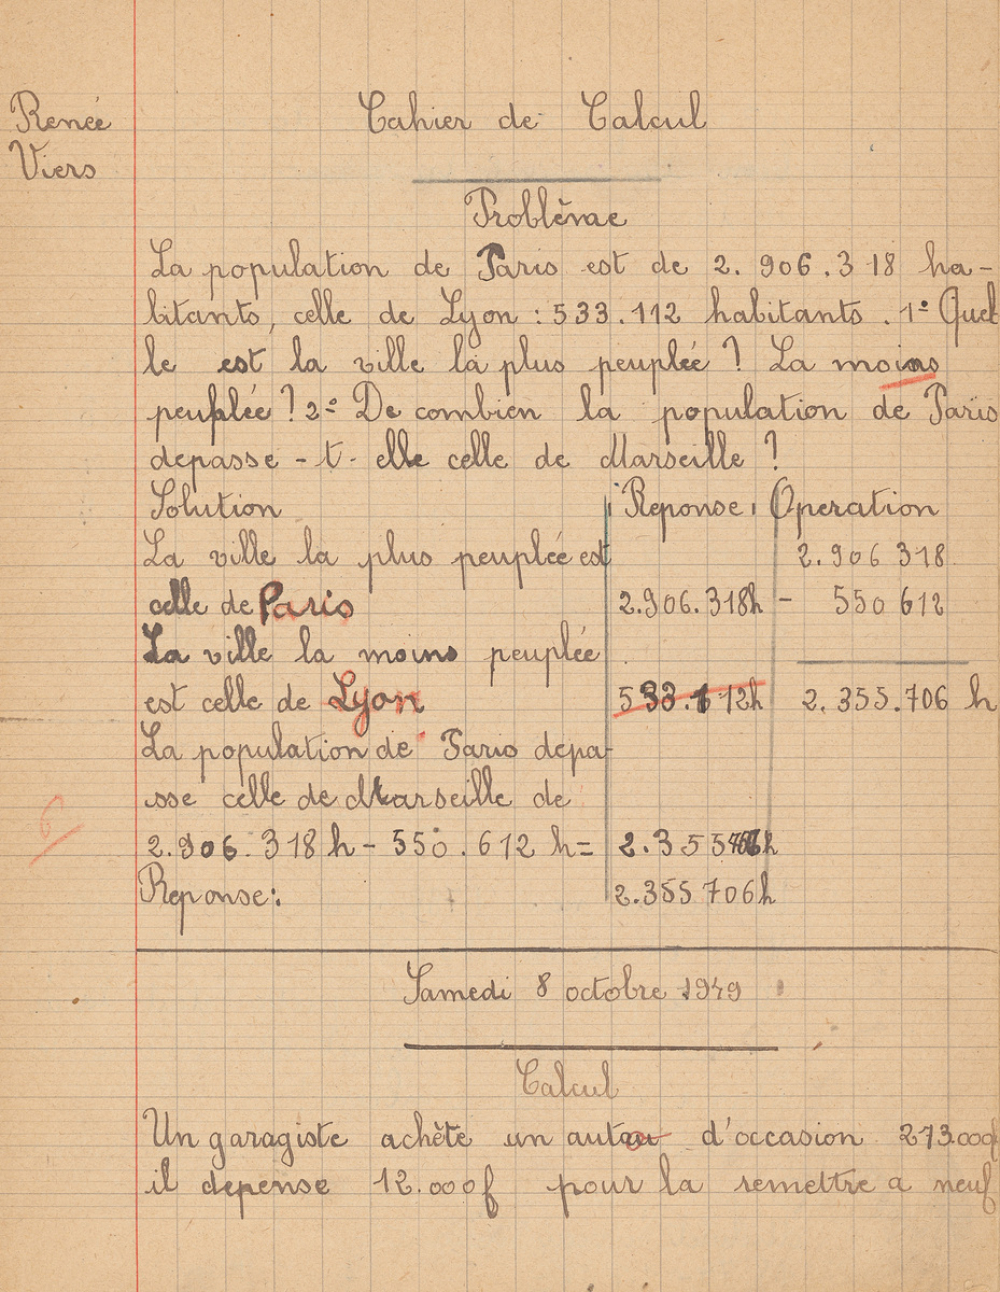 Renée
Viers
Cahier de Calcul
Problème
La population de Paris est de 2.906.318 ha-
bitants, celle de Lyon : 533.112 habitants. 1° Quel
le est la ville la plus peuplée ? La moins
peuplée ? 2° De combien la population de Paris
depasse-t-elle celle de Marseille ?
Solution Reponse Operation
La ville la plus peuplée est 2.906 318
celle de Paris 2.906.318h - 550 612
La ville la moins peuplée
est celle de Lyon 533.112h 2.355.706 h
La population de Paris depa-
sse celle de Marseille de
2.906.318 h - 550.612 h = 2.355706h
Reponse: 2.355706h
6
Samedi 8 octobre 1949
Calcul
Un garagiste achète un auto d'occasion 273.000f
il depense 12.000f pour la remettre a neuf